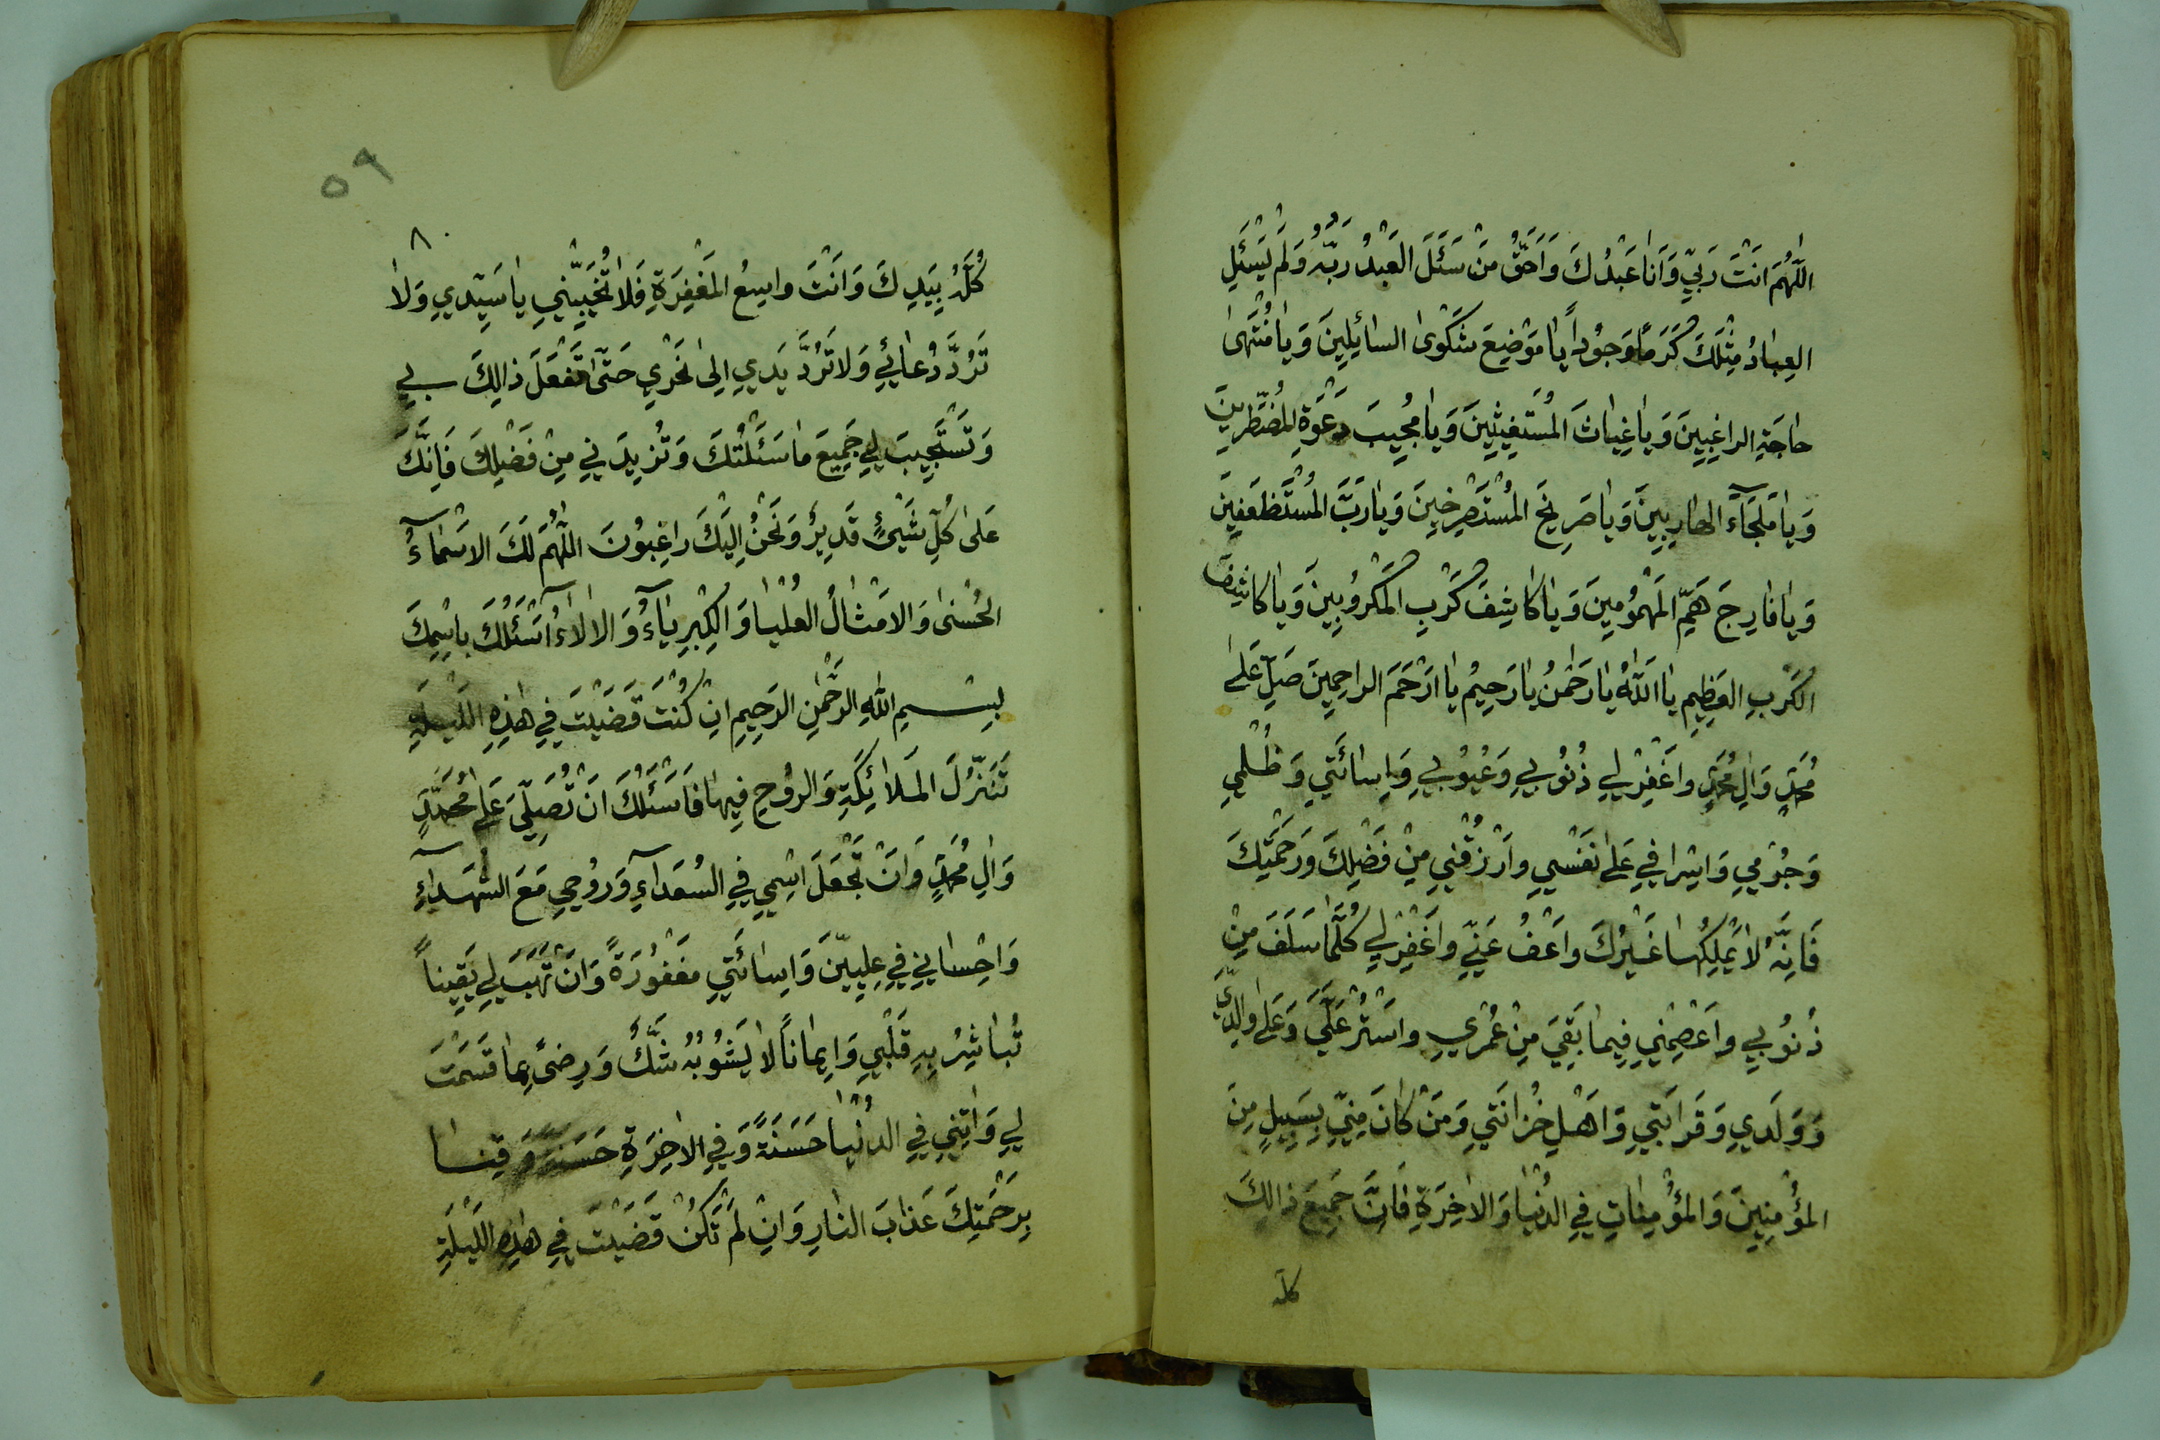 اللّٰهُمَّ اَنْتَ رَبّي وَاَنَا عَبْدُكَ وَاَحَقُّ مَنْ سَئَلَ العَبْدُ رَبَّهُ وَلَمْ يَسْئَلِ
العِبادُ مِثْلَكَ كَرَمًا وَجُودًا يا مَوْضِعَ شَكْوىٰ السائِلينَ وَيا مُنْتَهىٰ
حاجَةِ الراغِبينَ وَيا غِياثَ المُسْتَغيثينَ وَيا مُجيبَ دَعْوَةِ المُضْطَرّينَ
وَيا مَلْجَآءَ الهارِبينَ وَيا صَريخَ المُسْتَصْرِخينَ وَيا رَبَّ المُسْتَظعَفينَ
وَيا فارِجَ هَمِّ المَهْمُومينَ وَيا كاشِفَ كَرْبِ المَكْرُوبينَ وَيا كاشِفَ
الكَرْبِ العَظيمِ يا اَللّٰهُ يا رَحْمٰنُ يا رَحيمُ يا اَرْحَمَ الراحِمينَ صَلِّ عَلىٰ
مُحَمَّدٍ وَاٰلِ مُحَمَّدٍ واغْفِرْ لي ذُنُوبي وَعُيُوبي وَاِسائَتي وَظُلْمي
وَجُرْمي وَاِسْرافي عَلىٰ نَفْسي وارْزُقْني مِنْ فَضْلِكَ وَرَحْمَتِكَ
فَاِنَّهُ لا يَمْلِكُها غَيْرُكَ واعْفُ عَنّي واغْفِرْ لي كُلَّما سَلَفَ مِنْ
ذُنُوبي واعْصِمْني فيما بَقِيَ مِنْ عُمْري واسْتُرْ عَلَيَّ وَعَلىٰ والِدَيَّ
وَوَلَدي وَقَرابَتي وَاَهْلِ خُزانَتي وَمَنْ كانَ مِنّي بِسَبيلٍ مِنَ
المُؤْمِنينَ وَالمُؤْمِناتِ فِي الدُنْيا وَالاٰخِرَةِ فَاِنَّ جَميعَ ذالِكَ
كلّه
٥٩
٨٠
كُلَّهُ بِيَدِكَ وَاَنْتَ واسِعُ المَغْفِرَةِ فَلا تُخَيِّبْني يا سَيِّدي وَلا
تَرُدَّ دُعائي وَلا تَرُدَّ يَدي اِلىٰ نَحْري حَتّىٰ تَفْعَلَ ذالِكَ بي
وَتَسْتَجيبَ لي جَميعَ ما سَئَلْتُكَ وَتَزيدَني مِنْ فَضْلِكَ فَاِنَّكَ
عَلىٰ كُلِّ شَيْئٍ قَديرٌ وَنَحْنُ اِلَيْكَ راغِبُونَ اللّٰهُمَّ لَكَ الاَسْمآءُ
الحُسْنىٰ وَالاَمْثالُ العُلْيا وَالكِبْرِيآءُ وَالاٰلآءُ اَسْئَلُكَ بِاسْمِكَ
بِسْمِ اللّٰهِ الرَحْمٰنِ الرَحيمِ اِنْ كُنْتَ قَضَيْتَ في هٰذِهِ اللَيْلَةِ
تَنَزُّلَ المَلائِكَةِ وَالرُوحِ فيها فَاَسْئَلُكَ اَنْ تُصَلِّيَ عَلىٰ مُحَمَّدٍ
وَاٰلِ مُحَمَّدٍ وَاَنْ تَجْعَلَ اسْمي فِي السُعَدآءِ وَرُوحي مَعَ الشُهَدآءِ
وَاِحْساني في عِلِيّينَ وَاِسائَتي مَغْفُورَةً وَاَنْ تَهَبَ لي يَقيناً
تُباشِرُ بِهِ قَلْبي وَايماناً لا يَشُوبُهُ شَكٌّ وَرِضىً بِما قَسَمْتَ
لي وَاٰتِني فِي الدُنْيا حَسَنَةً وَفِي الاٰخِرَةِ حَسَنَةً وَقِنا
بِرَحْمَتِكَ عَذابَ النارِ وَاِنْ لَمْ تَكُنْ قَضَيْتَ في هٰذِهِ اللَيْلَةِ